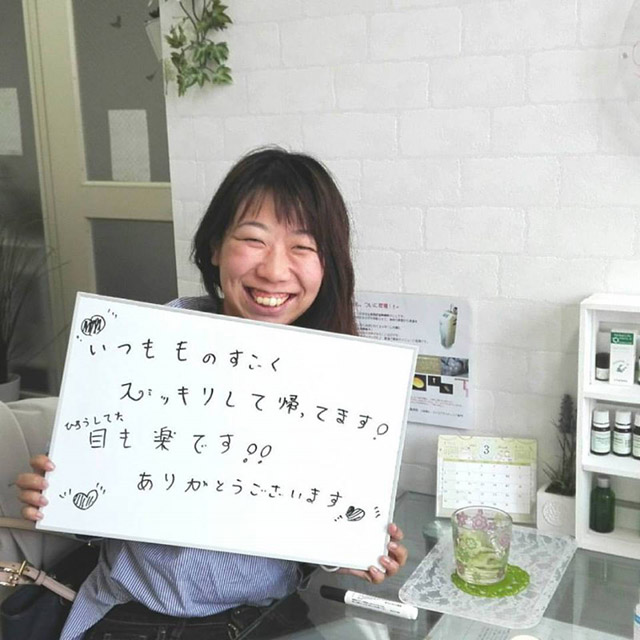 いつもものすごく
スッキリして帰ってます!
ひろうしてた
目も楽です!!
ありがとうございます
ついに登場!!
3